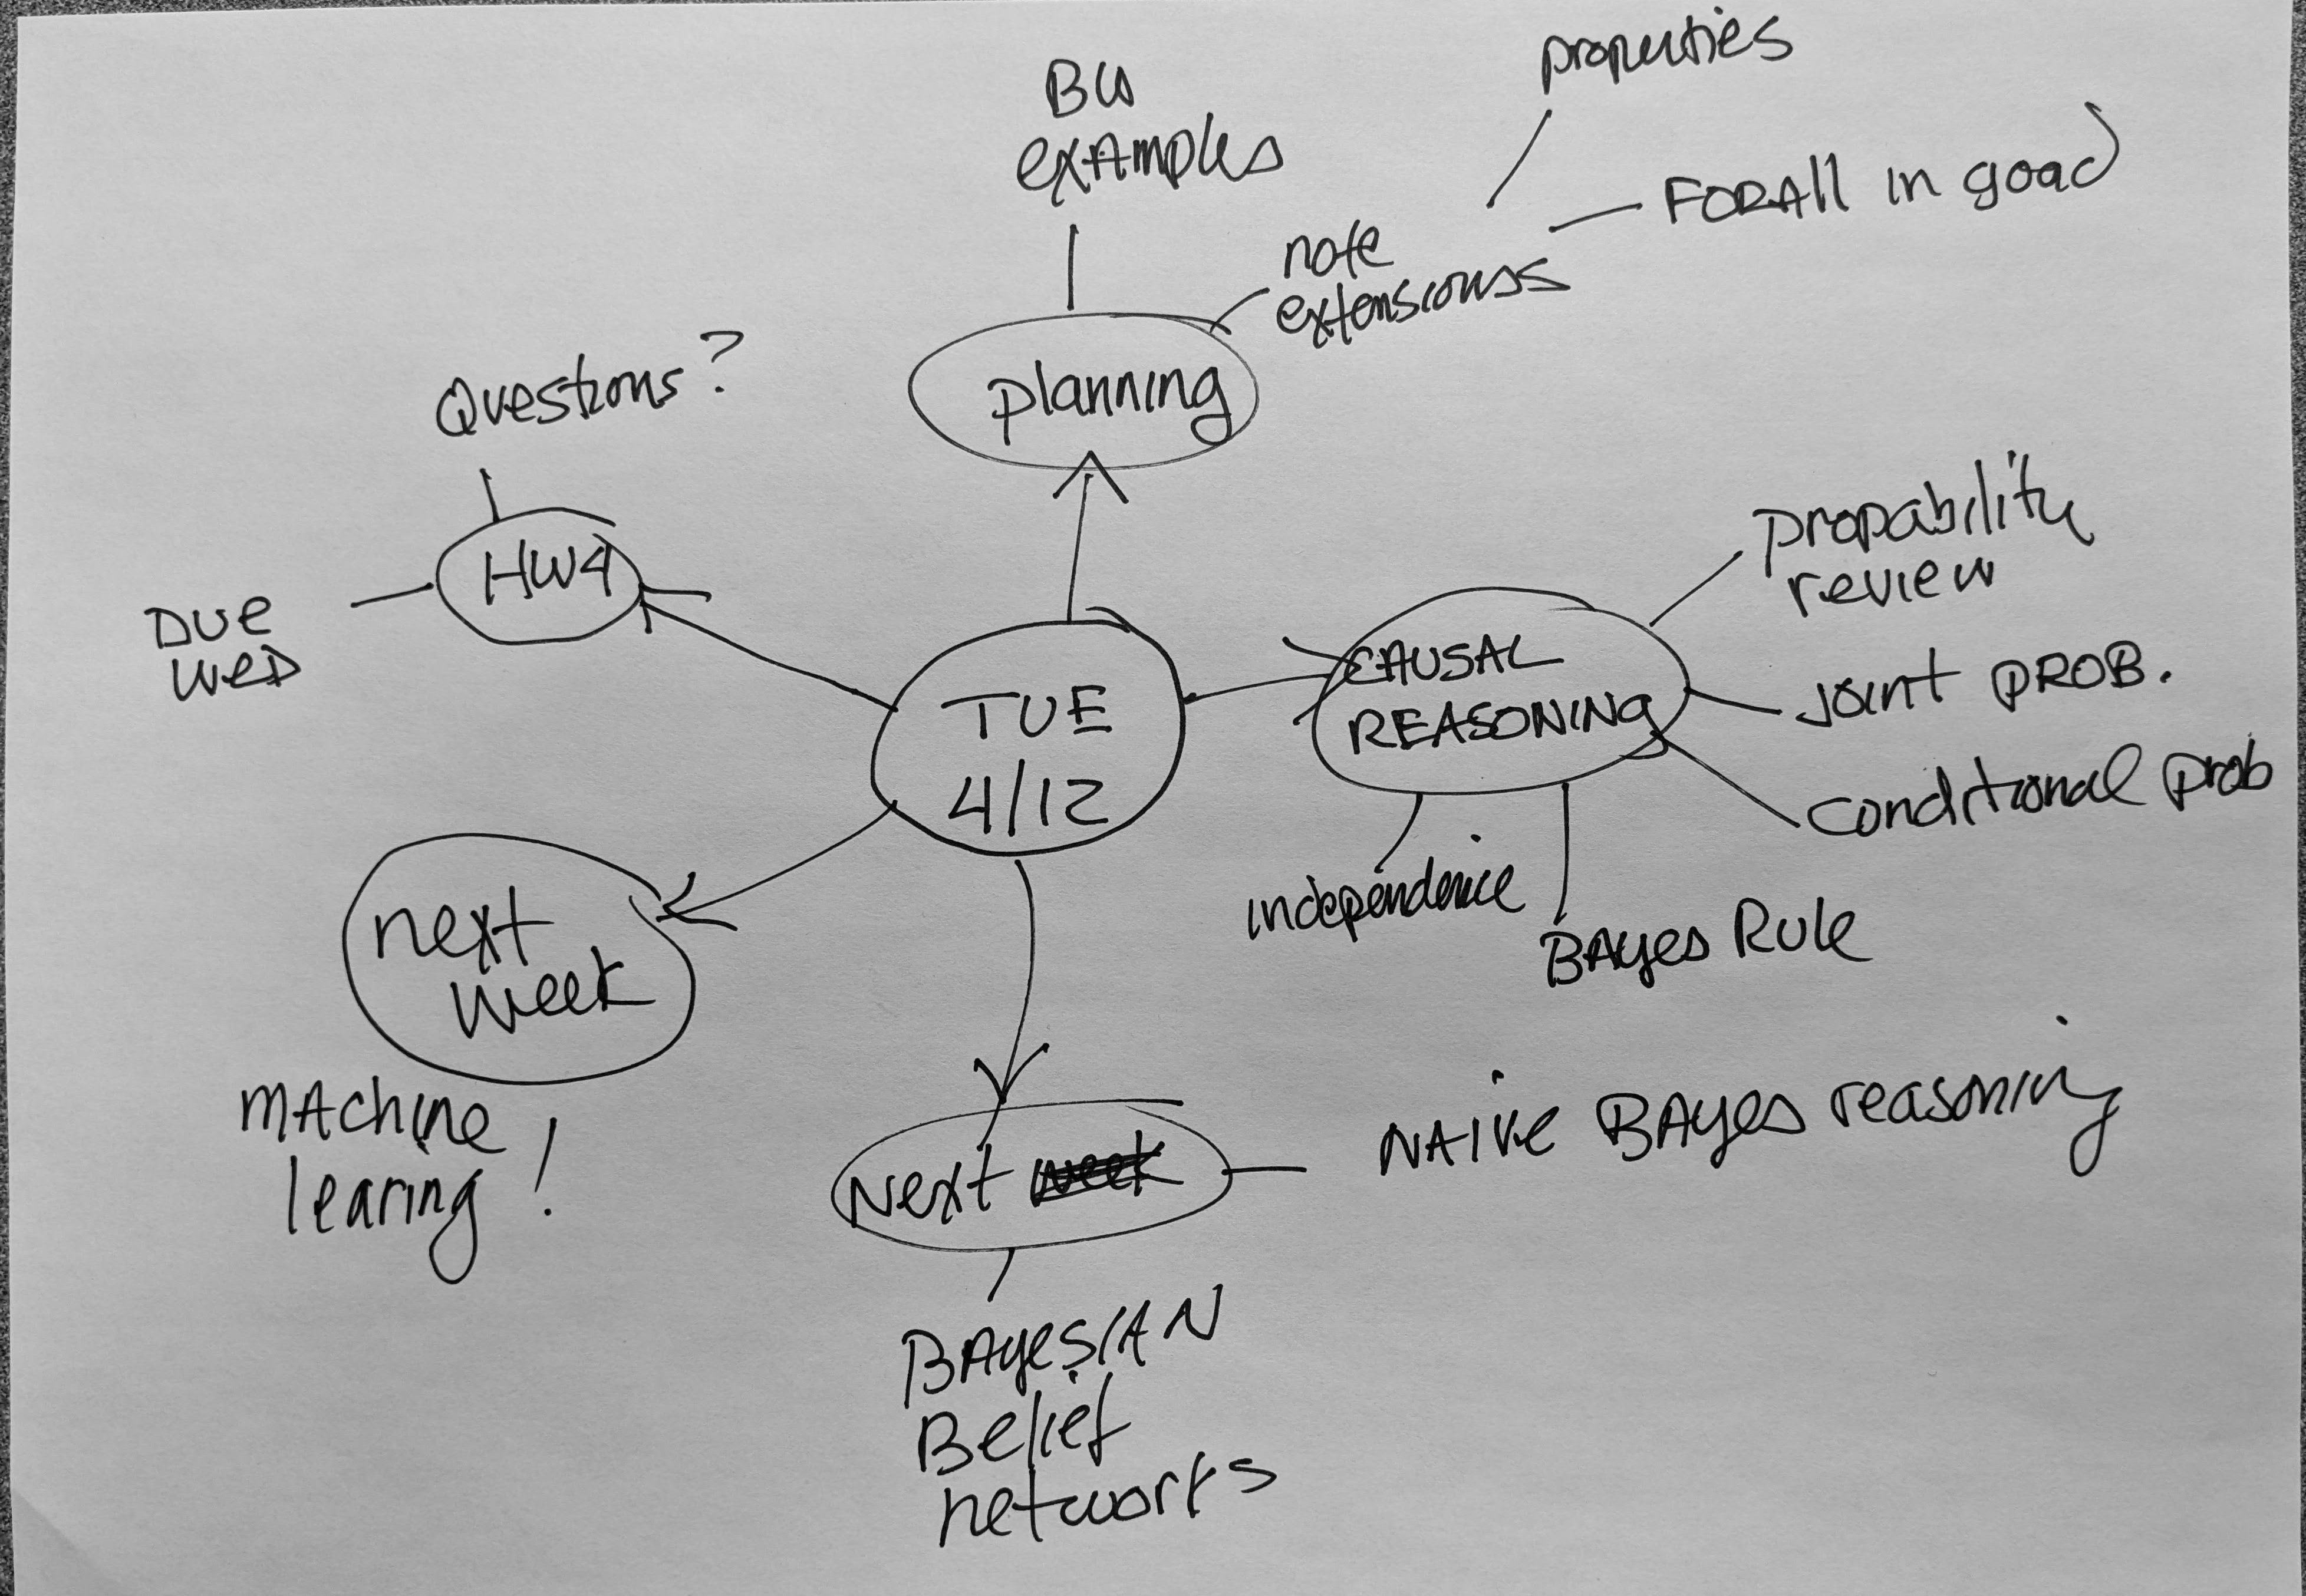 BW
examples
properties
FORAll in goal
note
extensionss
planning
Questions?
HW4
DUE
WED
TUE
4/12
CAUSAL
REASONING
propability
review
Joint PROB.
conditional prob
independence
BAyes Rule
next
week
MAchine
learing!
Next week
NAive BAyes reasoning
BAyesiAN
Belief
networks